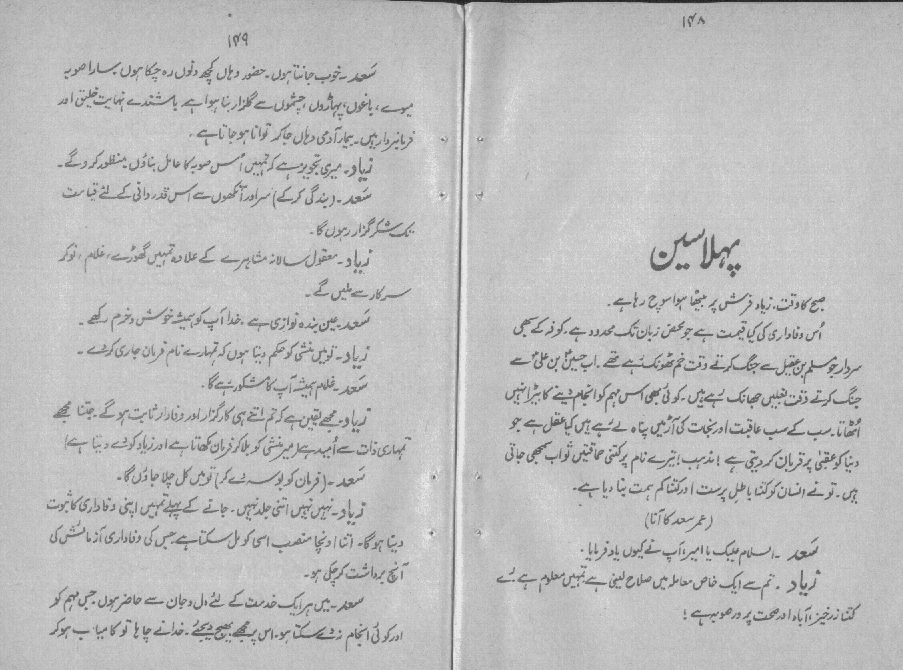 ۱۴۸
پہلا سین
صبح کا وقت۔ زیاد فرش پر بیٹھا ہوا سوچ رہا ہے۔
اُس وفاداری کی کیا قیمت ہے جو محض زبان تک محدود ہے۔ کوفہ کے سبھی
سردار جو مسلم بن عقیل سے جنگ کرتے وقت خم ٹھونک رہے تھے۔ اب حسینؑ بن علیؑ سے
جنگ کرتے وقت بغلیں جھانک رہے ہیں۔ کوئی بھی اس مہم کو انجام دینے کا بیڑا نہیں
اُٹھاتا۔ سب کے سب عاقبت اور نجات کی آڑ میں پناہ لے رہے ہیں کیا عقل ہے جو
دنیا کو عقبیٰ پر قربان کر دیتی ہے! مذہب! تیرے نام پر کتنی حماقتیں ثواب سمجھی جاتی
ہیں۔ تو نے انسان کو کتنا باطل پرست اور کتنا کم ہمت بنا دیا ہے۔
(عمر سعد کا آنا)
سَعد۔ السلام علیک یا امیر، آپ نے کیوں یاد فرمایا۔
زیاد۔ تم سے ایک خاص معاملہ میں صلاح لینی ہے تمہیں معلوم ہے رے
کتنا زرخیز، آباد اور صحت پرور صوبہ ہے!
۱۴۹
سَعد۔ خوب جانتا ہوں۔ حضور وہاں کچھ دنوں رہ چکا ہوں سارا صوبہ
میوے، باغوں، پہاڑوں، چشموں سے گلزار بنا ہوا ہے باشندے نہایت خلیق اور
فرمانبردار ہیں۔ بیمار آدمی وہاں جا کر توانا ہو جاتا ہے۔
زیاد۔ میری تجویز ہے کہ تمہیں اُس صوبہ کا عامل بناؤں منظور کرو گے۔
سَعد۔ (بندگی کرکے) سر اور آنکھوں سے اس قدر دانی کے لئے قیامت
تک شکر گزار رہوں گا۔
زیاد۔ معقول سالانہ مشاہرے کے علاوہ تمہیں گھوڑے، غلام، نوکر
سرکار سے ملیں گے۔
سَعد۔ عین بندہ نوازی ہے، خدا آپ کو ہمیشہ خوش و خرم رکھے۔
زیاد۔ تو میں منشی کو حکم دیتا ہوں کہ تمہارے نام فرمان جاری کر دے۔
سَعد۔ غلام ہمیشہ آپ کا مشکور رہے گا۔
زیاد۔ مجھے یقین ہے کہ تم اتنے ہی کارگزار اور وفادار ثابت ہو گے۔ جتنا مجھے
تمہاری ذات سے اُمید ہے (میر منشی کو بلا کر فرمان لکھاتا ہے اور زیاد کو دے دیتا ہے)
سَعد۔ (فرمان کو بوسہ دے کر) تو میں کل چلا جاؤں گا۔
زیاد۔ نہیں نہیں اتنی جلد نہیں۔ جانے کے پہلے تمہیں اپنی وفاداری کا ثبوت
دینا ہو گا۔ اتنا اونچا منصب اسی کو مل سکتا ہے جس کی وفاداری آزمائش کی
آنچ برداشت کر چکی ہو۔
سعد۔ میں ہر ایک خدمت کے لئے دل و جان سے حاضر ہوں جس مہم کو
اور کوئی انجام نہ دے سکتا ہو۔ اس پر مجھے بھیج دیجئے۔ خدا نے چاہا تو کامیاب ہو کر